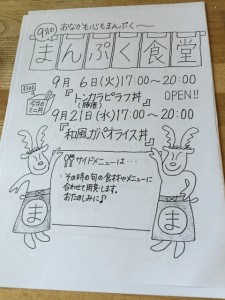 9月の おなかも心もまんぷく〜
まんぷく食堂
9月 6日(火)17:00〜20:00
『トンカラピラフ丼』 OPEN!!
9月21日(水)17:00〜20:00
『和風ガパオライス丼』
サイドメニューは…
その時の旬の食材やメニューに
合わせて用意します。
おたのしみに♪
ま
ま